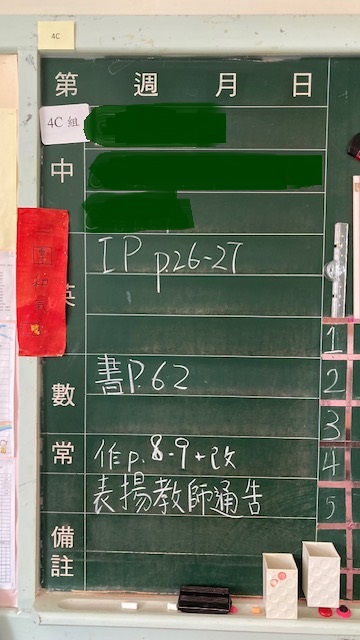 4C
第 週 月 日
4C組
中
英
IP p.26-27
數
書P.62
常
作p.8-9+改
表揚教師通告
備註
1
2
3
4
5